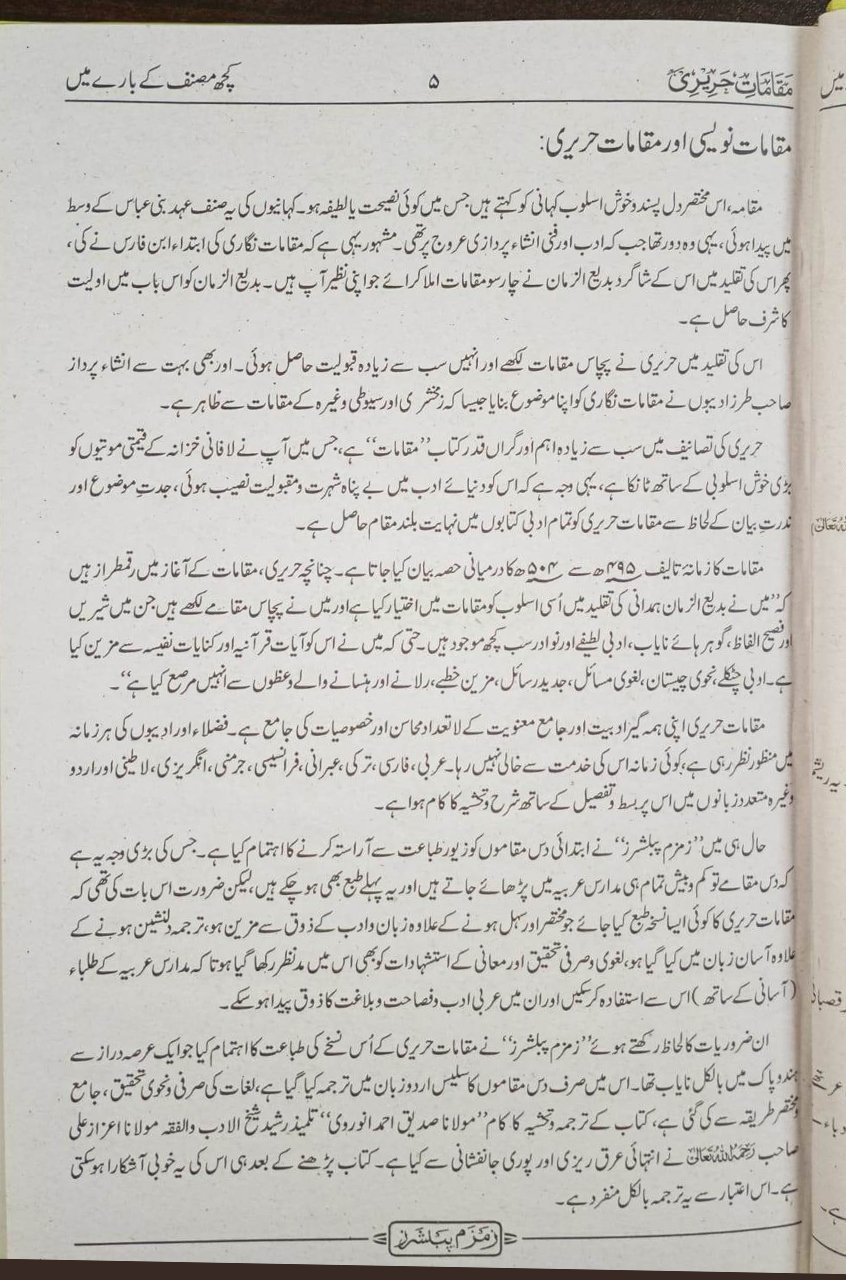 مقامات حریری ۵ کچھ مصنف کے بارے میں
مقامات نویسی اور مقامات حریری:
مقامہ، اس مختصر دل پسند و خوش اسلوب کہانی کو کہتے ہیں جس میں کوئی نصیحت یا لطیفہ ہو۔ کہانیوں کی یہ صنف عہد بنی عباس کے وسط
میں پیدا ہوئی، یہی وہ دور تھا جب کہ ادب اور فنی انشاء پردازی عروج پر تھی۔ مشہور یہی ہے کہ مقامات نگاری کی ابتداء ابن فارس نے کی،
پھر اس کی تقلید میں اس کے شاگرد بدیع الزمان نے چار سو مقامات املا کرائے جو اپنی نظیر آپ ہیں۔ بدیع الزمان کو اس باب میں اولیت
کا شرف حاصل ہے۔
اس کی تقلید میں حریری نے پچاس مقامات لکھے اور انہیں سب سے زیادہ قبولیت حاصل ہوئی۔ اور بھی بہت سے انشاء پرداز
صاحب طرز ادیبوں نے مقامات نگاری کو اپنا موضوع بنایا جیسا کہ زمخشری اور سیوطی وغیرہ کے مقامات سے ظاہر ہے۔
حریری کی تصانیف میں سب سے زیادہ اہم اور گراں قدر کتاب ”مقامات“ ہے، جس میں آپ نے لافانی خزانہ کے قیمتی موتیوں کو
بڑی خوش اسلوبی کے ساتھ ٹانکا ہے، یہی وجہ ہے کہ اس کو دنیائے ادب میں بے پناہ شہرت و مقبولیت نصیب ہوئی، جدتِ موضوع اور
ندرتِ بیان کے لحاظ سے مقامات حریری کو تمام ادبی کتابوں میں نہایت بلند مقام حاصل ہے۔
مقامات کا زمانۂ تالیف ۴۹۵ھ سے ۵۰۴ھ کا درمیانی حصہ بیان کیا جاتا ہے۔ چنانچہ حریری، مقامات کے آغاز میں رقمطراز ہیں
کہ ”میں نے بدیع الزمان ہمدانی کی تقلید میں اُسی اسلوب کو مقامات میں اختیار کیا ہے اور میں نے پچاس مقامے لکھے ہیں جن میں شیریں
اور فصیح الفاظ، گوہر ہائے نایاب، ادبی لطیفے اور نوادر سب کچھ موجود ہیں۔ حتی کہ میں نے اس کو آیات قرآنیہ اور کنایات نفیسہ سے مزین کیا
ہے۔ ادبی چٹکلے، نحوی چیستان، لغوی مسائل، جدید رسائل، مزین خطبے، رلانے اور ہنسانے والے وعظوں سے انہیں مرصع کیا ہے“۔
مقامات حریری اپنی ہمہ گیر ادبیت اور جامع معنویت کے لاتعداد محاسن اور خصوصیات کی جامع ہے۔ فضلاء اور ادیبوں کی ہر زمانہ
میں منظور نظر رہی ہے، کوئی زمانہ اس کی خدمت سے خالی نہیں رہا۔ عربی، فارسی، ترکی، عبرانی، فرانسیسی، جرمنی، انگریزی، لاطینی اور اردو
وغیرہ متعدد زبانوں میں اس پر بسط و تفصیل کے ساتھ شرح و تحشیہ کا کام ہوا ہے۔
حال ہی میں ”زمزم پبلشرز“ نے ابتدائی دس مقاموں کو زیور طباعت سے آراستہ کرنے کا اہتمام کیا ہے۔ جس کی بڑی وجہ یہ ہے
کہ دس مقامے تو کم و بیش تمام ہی مدارس عربیہ میں پڑھائے جاتے ہیں اور یہ پہلے طبع بھی ہو چکے ہیں، لیکن ضرورت اس بات کی تھی کہ
مقامات حریری کا کوئی ایسا نسخہ طبع کیا جائے جو مختصر اور سہل ہونے کے علاوہ زبان و ادب کے ذوق سے مزین ہو، ترجمہ دلنشین ہونے کے
علاوہ آسان زبان میں کیا گیا ہو، لغوی و صرفی تحقیق اور معانی کے استشہادات کو بھی اس میں مدنظر رکھا گیا ہو تا کہ مدارس عربیہ کے طلباء
(آسانی کے ساتھ) اس سے استفادہ کر سکیں اور ان میں عربی ادب و فصاحت و بلاغت کا ذوق پیدا ہو سکے۔
ان ضروریات کا لحاظ رکھتے ہوئے ”زمزم پبلشرز“ نے مقامات حریری کے اُس نسخے کی طباعت کا اہتمام کیا جو ایک عرصہ دراز سے
ہندوپاک میں بالکل نایاب تھا۔ اس میں صرف دس مقاموں کا سلیس اردو زبان میں ترجمہ کیا گیا ہے، لغات کی صرفی و نحوی تحقیق، جامع
و مختصر طریقہ سے کی گئی ہے، کتاب کے ترجمہ و تحشیہ کا کام ”مولانا صدیق احمد انوروی“ تلمیذ رشید شیخ الادب والفقہ مولانا اعزاز علی
صاحب رَحِمَہُ اللّٰہُ تَعَالٰی نے انتہائی عرق ریزی اور پوری جانفشانی سے کیا ہے۔ کتاب پڑھنے کے بعد ہی اس کی یہ خوبی آشکارا ہو سکتی
ہے۔ اس اعتبار سے یہ ترجمہ بالکل منفرد ہے۔
زمزم پبلشرز